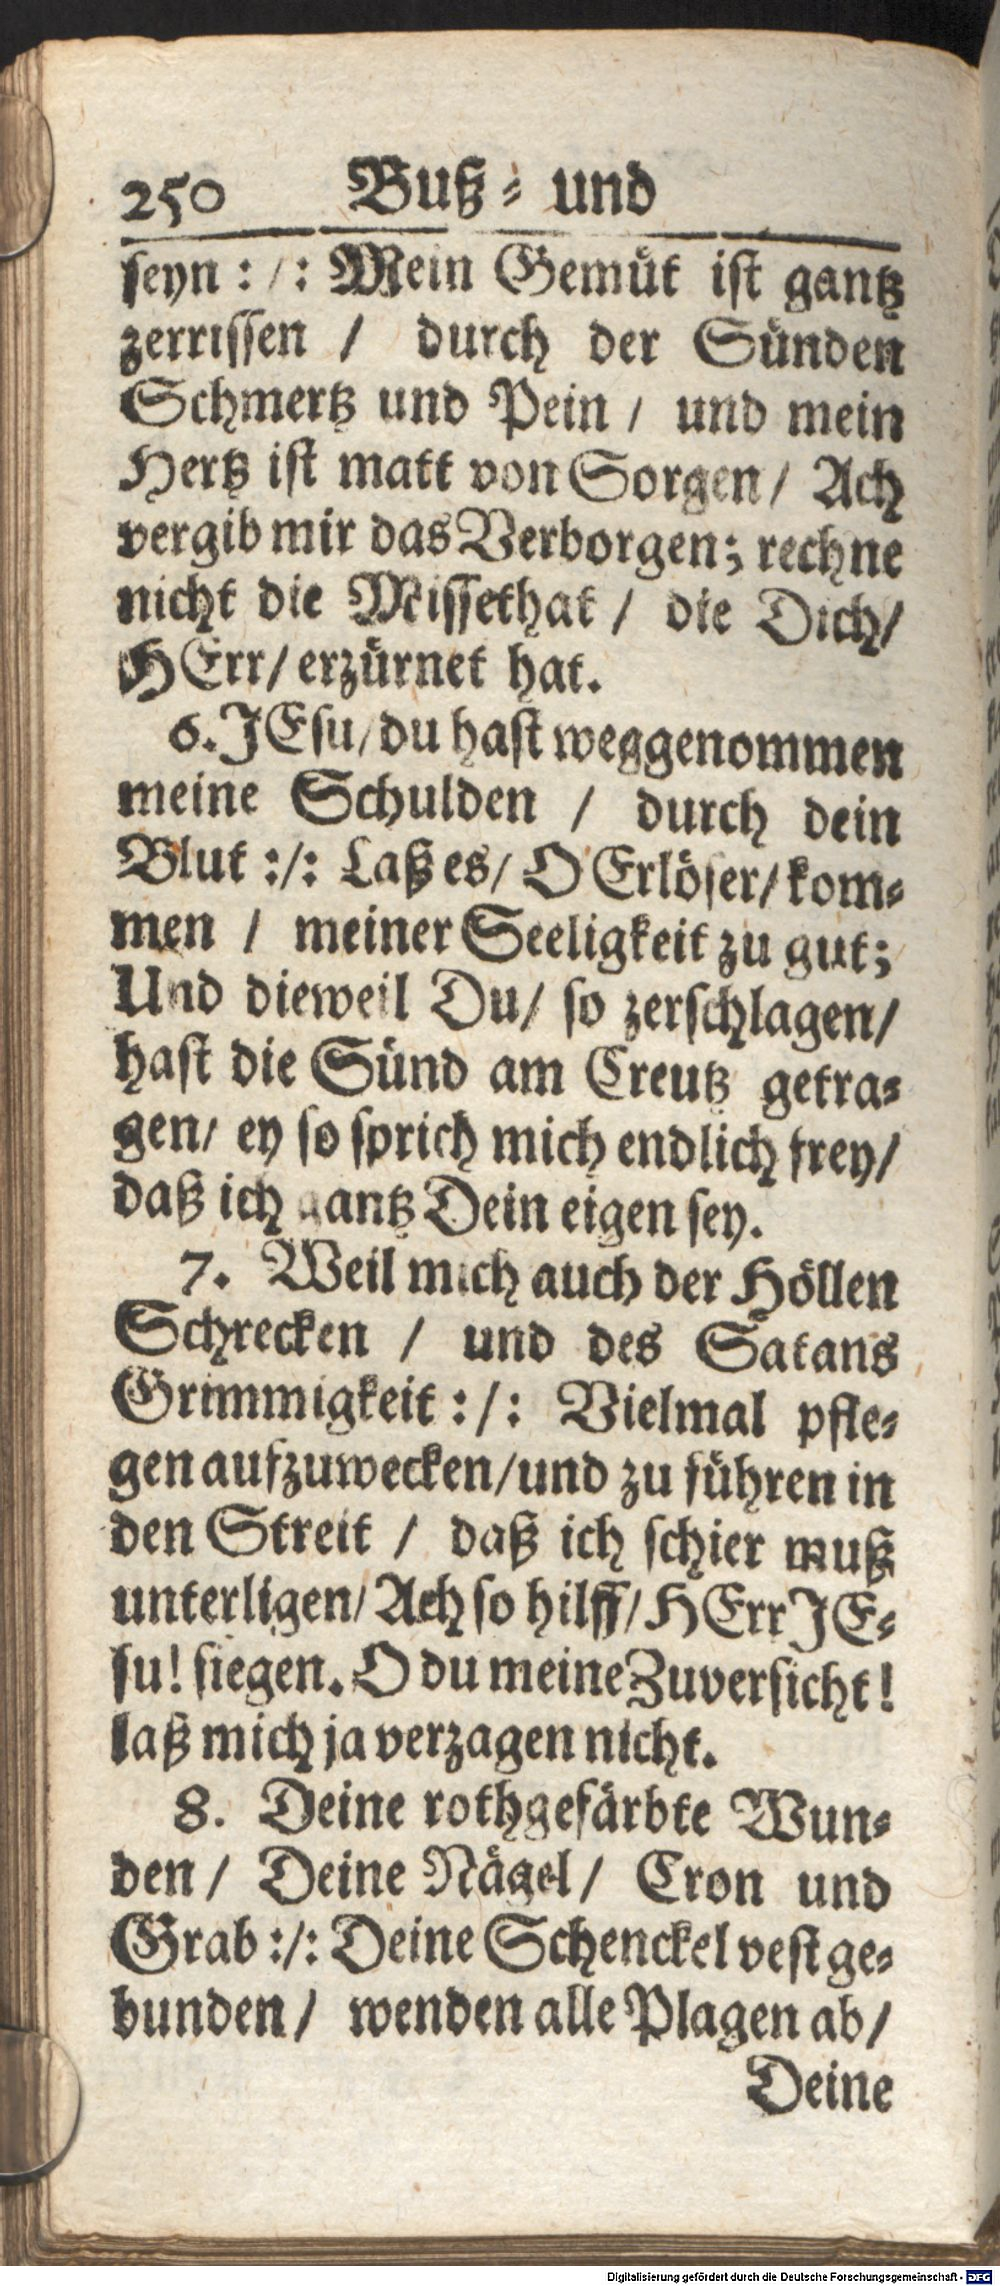 250 Buß- und
seyn :/: Mein Gemüt ist gantz
zerrissen / durch der Sünden
Schmertz und Pein / und mein
Hertz ist matt von Sorgen / Ach
vergib mir das Verborgen; rechne
nicht die Missethat / die Dich /
HErr / erzürnet hat.
6. JEsu / du hast weggenommen
meine Schulden / durch dein
Blut :/: Laß es / O Erlöser / kom-
men / meiner Seeligkeit zu gut;
Und dieweil Du / so zerschlagen /
hast die Sünd am Creutz getra-
gen / ey so sprich mich endlich frey /
daß ich gantz Dein eigen sey.
7. Weil mich auch der Höllen
Schrecken / und des Satans
Grimmigkeit :/: Vielmal pfle-
gen aufzuwecken / und zu führen in
den Streit / daß ich schier muß
unterligen / Ach so hilff / HErr JE-
su! siegen. O du meine Zuversicht!
laß mich ja verzagen nicht.
8. Deine rothgefärbte Wun-
den / Deine Nägel / Cron und
Grab :/: Deine Schenckel vest ge-
bunden / wenden alle Plagen ab /
Deine
Digitalisierung gefördert durch die Deutsche Forschungsgemeinschaft - DFG